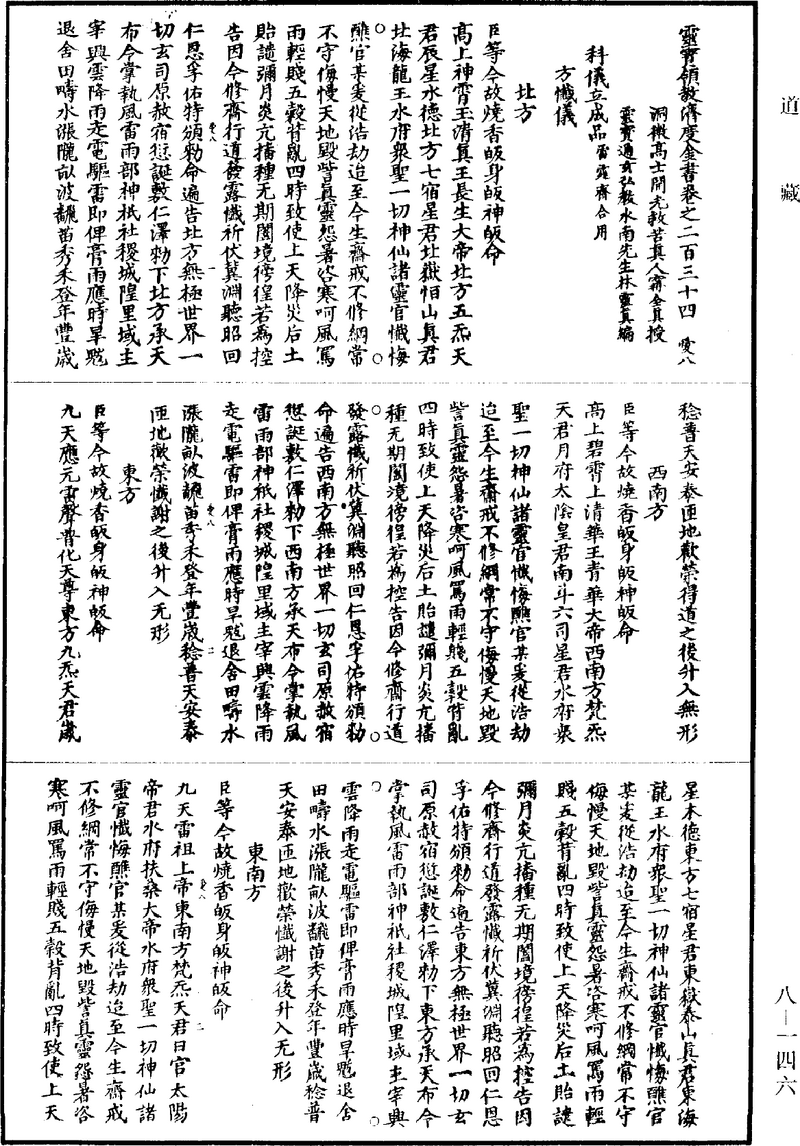 道藏
靈寶領教濟度金書卷之二百三十四　愛八
洞微高士開光救苦真人甯全真授
靈寶通玄弘教水南先生林靈真編
科儀立成品雷霆齋合用
方懺儀
北方
臣等今故燒香皈身皈神皈命
高上神霄玉清真王長生大帝北方五炁天
君辰星水德北方七宿星君北嶽恒山真君
北海龍王水府衆聖一切神仙諸靈官懺悔
醮官某爰從浩劫迨至今生齋戒不修綱常
不守侮慢天地毀訾真靈怨暑咨寒呵風罵
雨輕賤五穀背亂四時致使上天降災后土
貽譴彌月炎亢播種无期闔境徬徨若為控
告因今修齋行道發露懺祈伏冀淵聽昭回
仁恩孚佑特頒勑命遍告北方無極世界一
切玄司原赦宿愆誕敷仁澤勑下北方承天
布令掌執風雷雨部神祇社稷城隍里域主
宰興雲降雨走電驅雷即俾膏雨應時旱魃
退舍田疇水漲隴畝波翻苗秀禾登年豐歲
稔普天安泰匝地歡榮得道之後升入無形
西南方
臣等今故燒香皈身皈神皈命
高上碧霄上清華王青華大帝西南方梵炁
天君月府太陰皇君南斗六司星君水府衆
聖一切神仙諸靈官懺悔醮官某爰從浩劫
迨至今生齋戒不修綱常不守侮慢天地毀
訾真靈怨暑咨寒呵風罵雨輕賤五穀背亂
四時致使上天降災后土貽譴彌月炎亢播
種无期闔境徬徨若為控告因今修齋行道
發露懺祈伏冀淵聽昭回仁恩孚佑特頒勑
命遍告西南方無極世界一切玄司原赦宿
愆誕敷仁澤勑下西南方承天布令掌執風
雷雨部神祇社稷城隍里域主宰興雲降雨
走電驅雷即俾膏雨應時旱魃退舍田疇水
漲隴畝波翻苗秀禾登年豐歲稔普天安泰
匝地歡榮懺謝之後升入无形
東方
臣等今故燒香皈身皈神皈命
九天應元雷聲普化天尊東方九炁天君歲
星木德東方七宿星君東嶽泰山真君東海
龍王水府衆聖一切神仙諸靈官懺悔醮官
某爰從浩劫迨至今生齋戒不修綱常不守
侮慢天地毀訾真靈怨暑咨寒呵風罵雨輕
賤五穀背亂四時致使上天降災后土貽譴
彌月炎亢播種无期闔境徬徨若為控告因
今修齋行道發露懺祈伏冀淵聽昭回仁恩
孚佑特頒勑命遍告東方無極世界一切玄
司原赦宿愆誕敷仁澤勑下東方承天布令
掌執風雷雨部神祇社稷城隍里域主宰興
雲降雨走電驅雷即俾膏雨應時旱魃退舍
田疇水漲隴畝波翻苗秀禾登年豐歲稔普
天安泰匝地歡榮懺謝之後升入无形
東南方
臣等今故燒香皈身皈神皈命
九天雷祖上帝東南方梵炁天君日宮太陽
帝君水府扶桑大帝水府衆聖一切神仙諸
靈官懺悔醮官某爰從浩劫迨至今生齋戒
不修綱常不守侮慢天地毀訾真靈怨暑咨
寒呵風罵雨輕賤五穀背亂四時致使上天
八—一四六